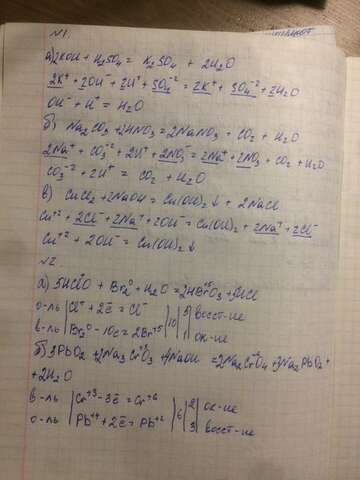 №1.
а) 2KOH + H₂SO₄ = K₂SO₄ + 2H₂O
2K⁺ + 2OH⁻ + 2H⁺ + SO₄⁻² = 2K⁺ + SO₄⁻² + 2H₂O
OH⁻ + H⁺ = H₂O
б) Na₂CO₃ + 2HNO₃ = 2NaNO₃ + CO₂ + H₂O
2Na⁺ + CO₃⁻² + 2H⁺ + 2NO₃⁻ = 2Na⁺ + 2NO₃ + CO₂ + H₂O
CO₃⁻² + 2H⁺ = CO₂ + H₂O
в) CuCl₂ + 2NaOH = Cu(OH)₂↓ + 2NaCl
Cu⁺² + 2Cl⁻ + 2Na⁺ + 2OH⁻ = Cu(OH)₂ + 2Na⁺ + 2Cl⁻
Cu⁺² + 2OH⁻ = Cu(OH)₂↓
№2.
а) 5HClO + Br₂⁰ + H₂O = 2HBr⁺⁵O₃ + 5HCl
о-ль | Cl⁺ + 2ē = Cl⁻ | 10 | 5 | восст-ие
в-ль | Br₂⁰ - 10ē = 2Br⁺⁵ | 1 | ок-ие
б) 3PbO₂ + 2Na₃CrO₃ + NaOH = 2Na₂CrO₄ + 3Na₂PbO₂ +
+ 2H₂O
в-ль | Cr⁺³ - 3ē = Cr⁺⁶ | 6 | 2 | ок-ие
о-ль | Pb⁺⁴ + 2ē = Pb⁺² | 3 | восст-ие